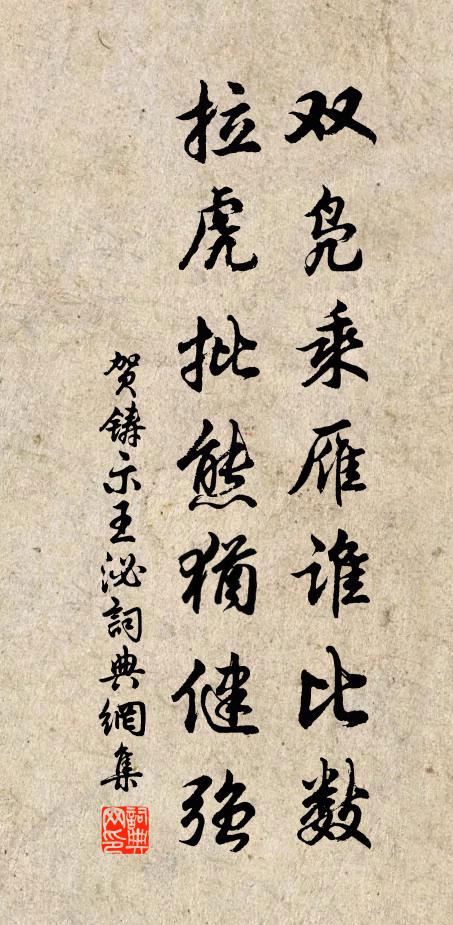 双凫乘雁谁比数
拉虎批熊犹健强
贺铸示王泌詞典網集
詞典网印